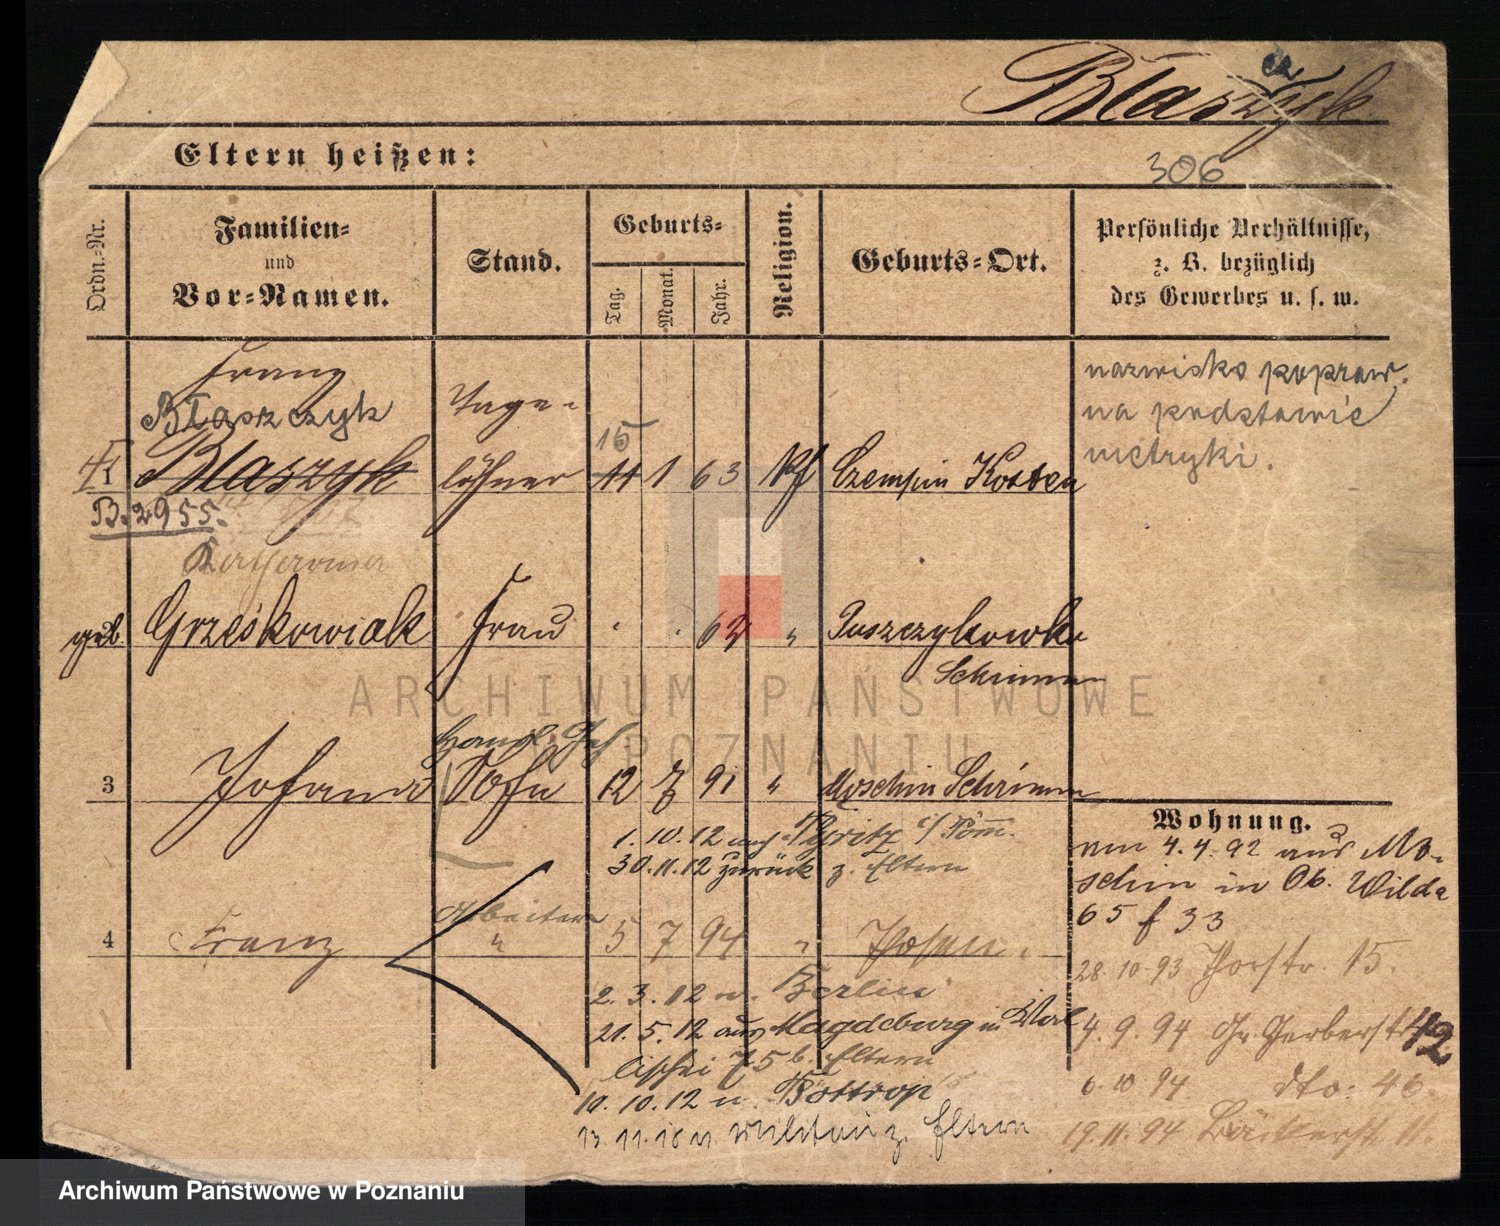 Błaszyk
306
Eltern heißen:
Ordn.-Nr.
Familien-
und
Vor-Namen.
Stand.
Geburts-
Tag.
Monat.
Jahr.
Religion.
Geburts-Ort.
Persönliche Verhältnisse,
z. B. bezüglich
des Gewerbes u. s. w.
Franz
Błaszczyk
Tage-
nazwisko popraw.
na podstawie
metryki.
15
Blaszyk löhner 11 1 63 Czempin Kosten
B.2955.
Katharina
geb. Grześkowiak Frau 62 " Puszczykowko
Schrimm
3 Johann Sohn 12 7 91 " Moschin Schrimm
1. 10. 12 nach Pyritz i/Pomm.
30. 11. 12 zurück z. Eltern
Arbeiter
4 Franz " 5 7 94 " Posen
2. 3. 12 n. Berlin
21. 5. 12 aus Magdeburg in
75 b. Eltern
10. 10. 12 n. Bottrop
13. 11. 18 v. Militär z. Eltern
Wohnung.
am 4. 4. 92 aus Mo-
schin in Ob. Wilda
65 f 33
28. 10. 93 Thorstr. 15.
4. 9. 94 Gr. Gerberst 42
6. 10. 94 dto: 46.
19. 11. 94 Bäckerst. 11.
ARCHIWUM PAŃSTWOWE
W POZNANIU
Archiwum Państwowe w Poznaniu